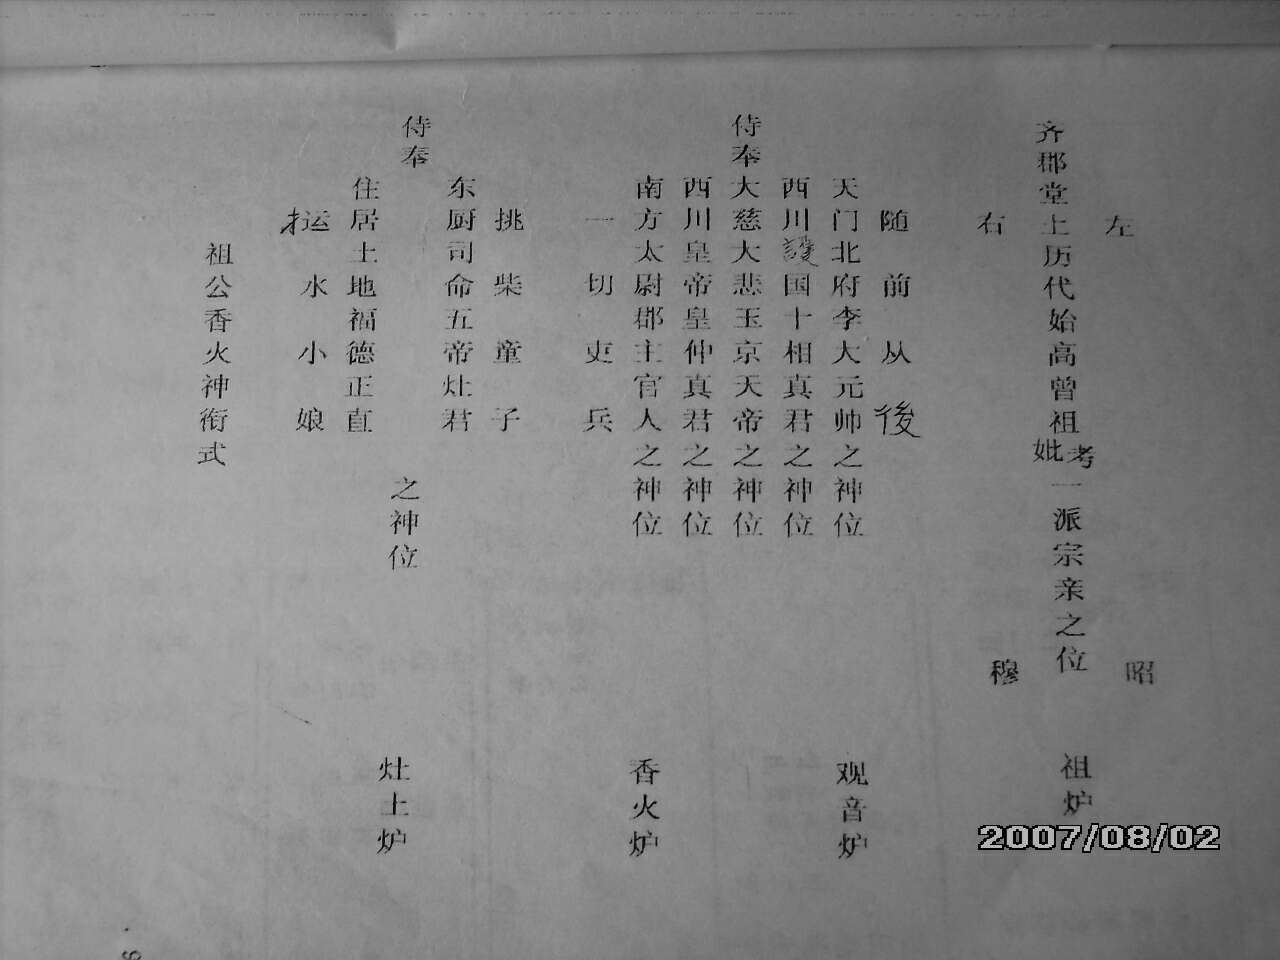 左
昭
齐郡堂上历代始高曾祖考妣一派宗亲之位
右
穆
祖炉
随前从後
天门北府李大元帅之神位
西川護国十相真君之神位
侍奉大慈大悲玉京天帝之神位
西川皇帝皇仲真君之神位
南方太尉郡主官人之神位
一切吏兵
观音炉
香火炉
挑柴童子
东厨司命五帝灶君
侍奉
之神位
住居土地福德正直
运水小娘
灶土炉
祖公香火神衔式
2007/08/02